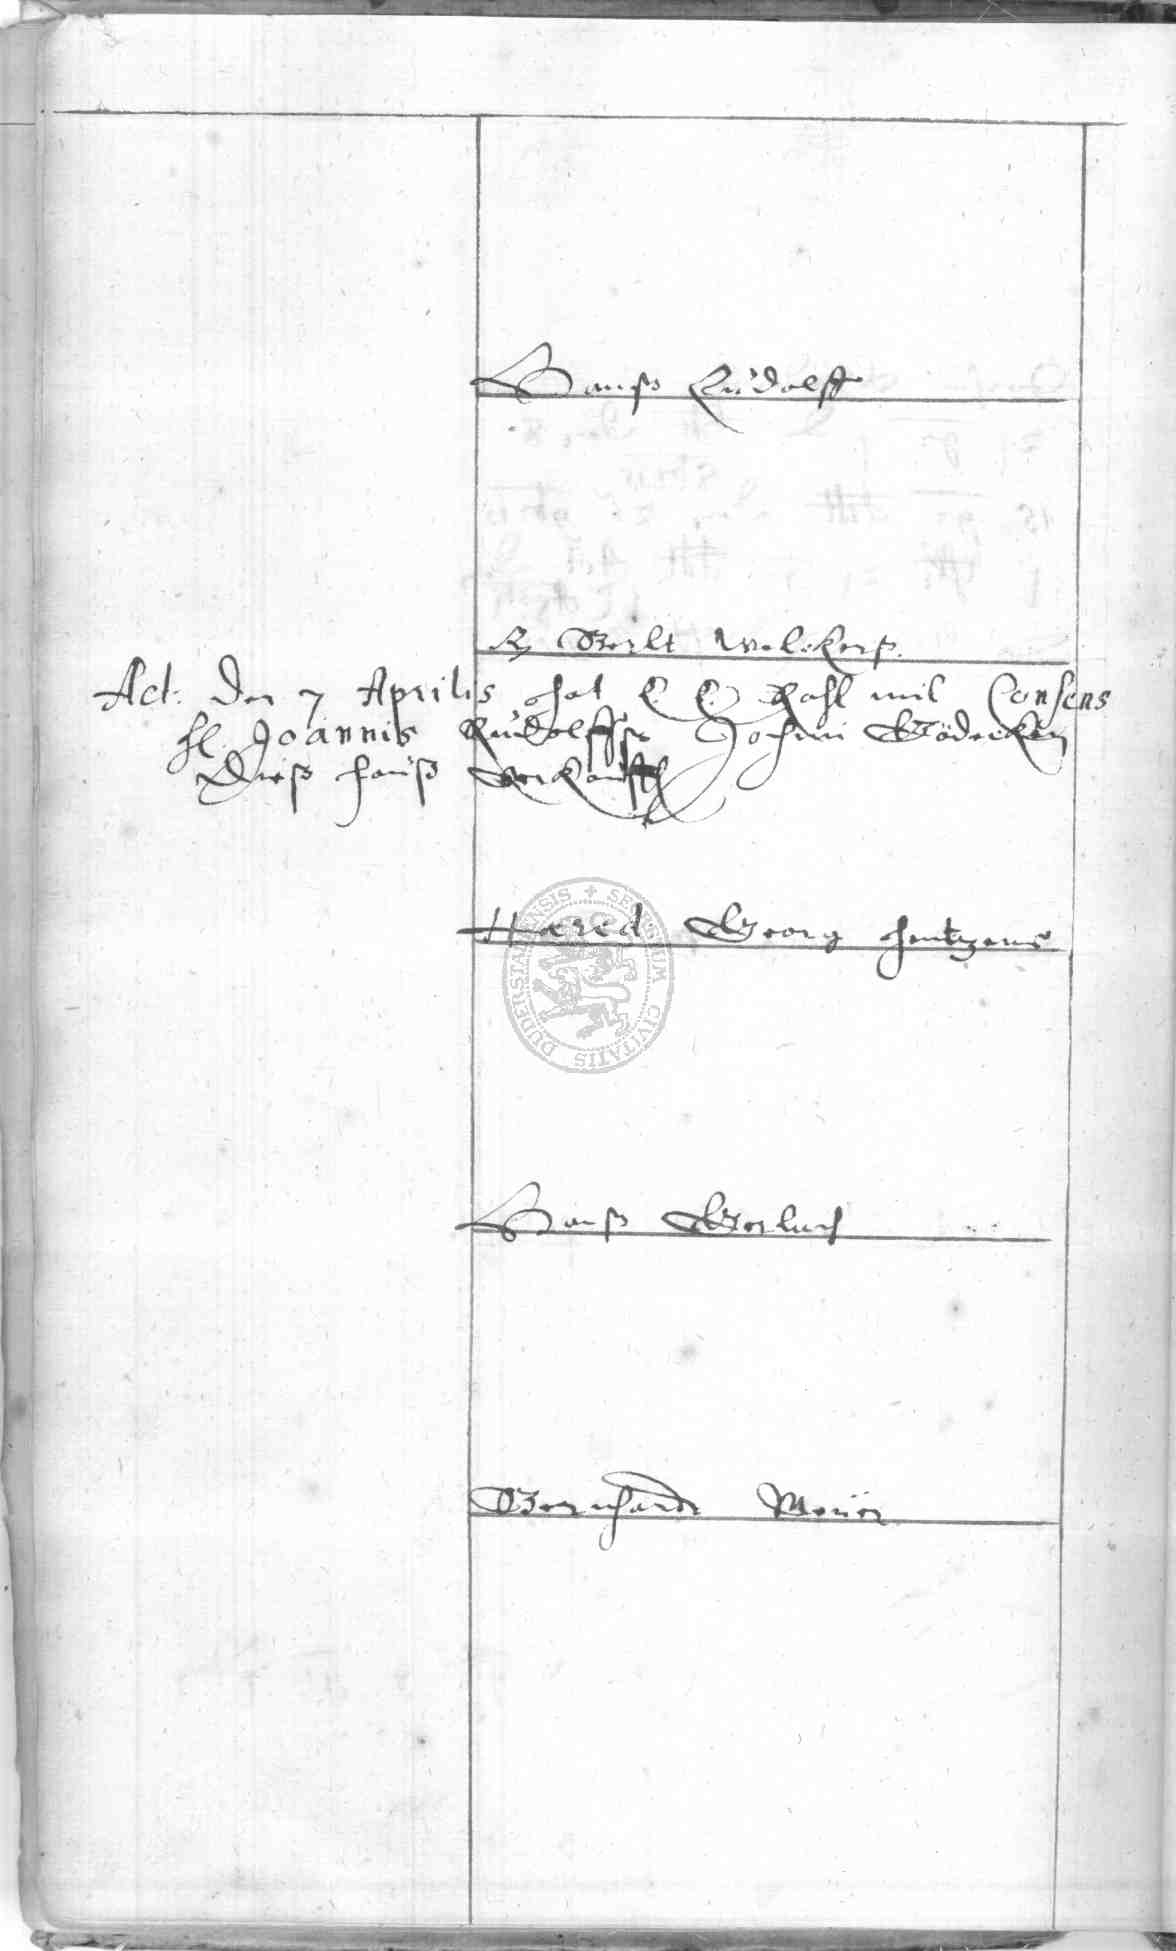 Hanß Rudolff
R Berlt Wolckerß.
Act: den 7 Aprilis hat E. E. Raht mit Consens
hl. Joannis Rudolffß Jochim Gödecken
Dieß hauß verkaufft
Hæred Georg Hentzens
Hanß Gerlach
Bernhardt Meüer
SIGILLUM CIVITATIS DUDERSTADENSIS